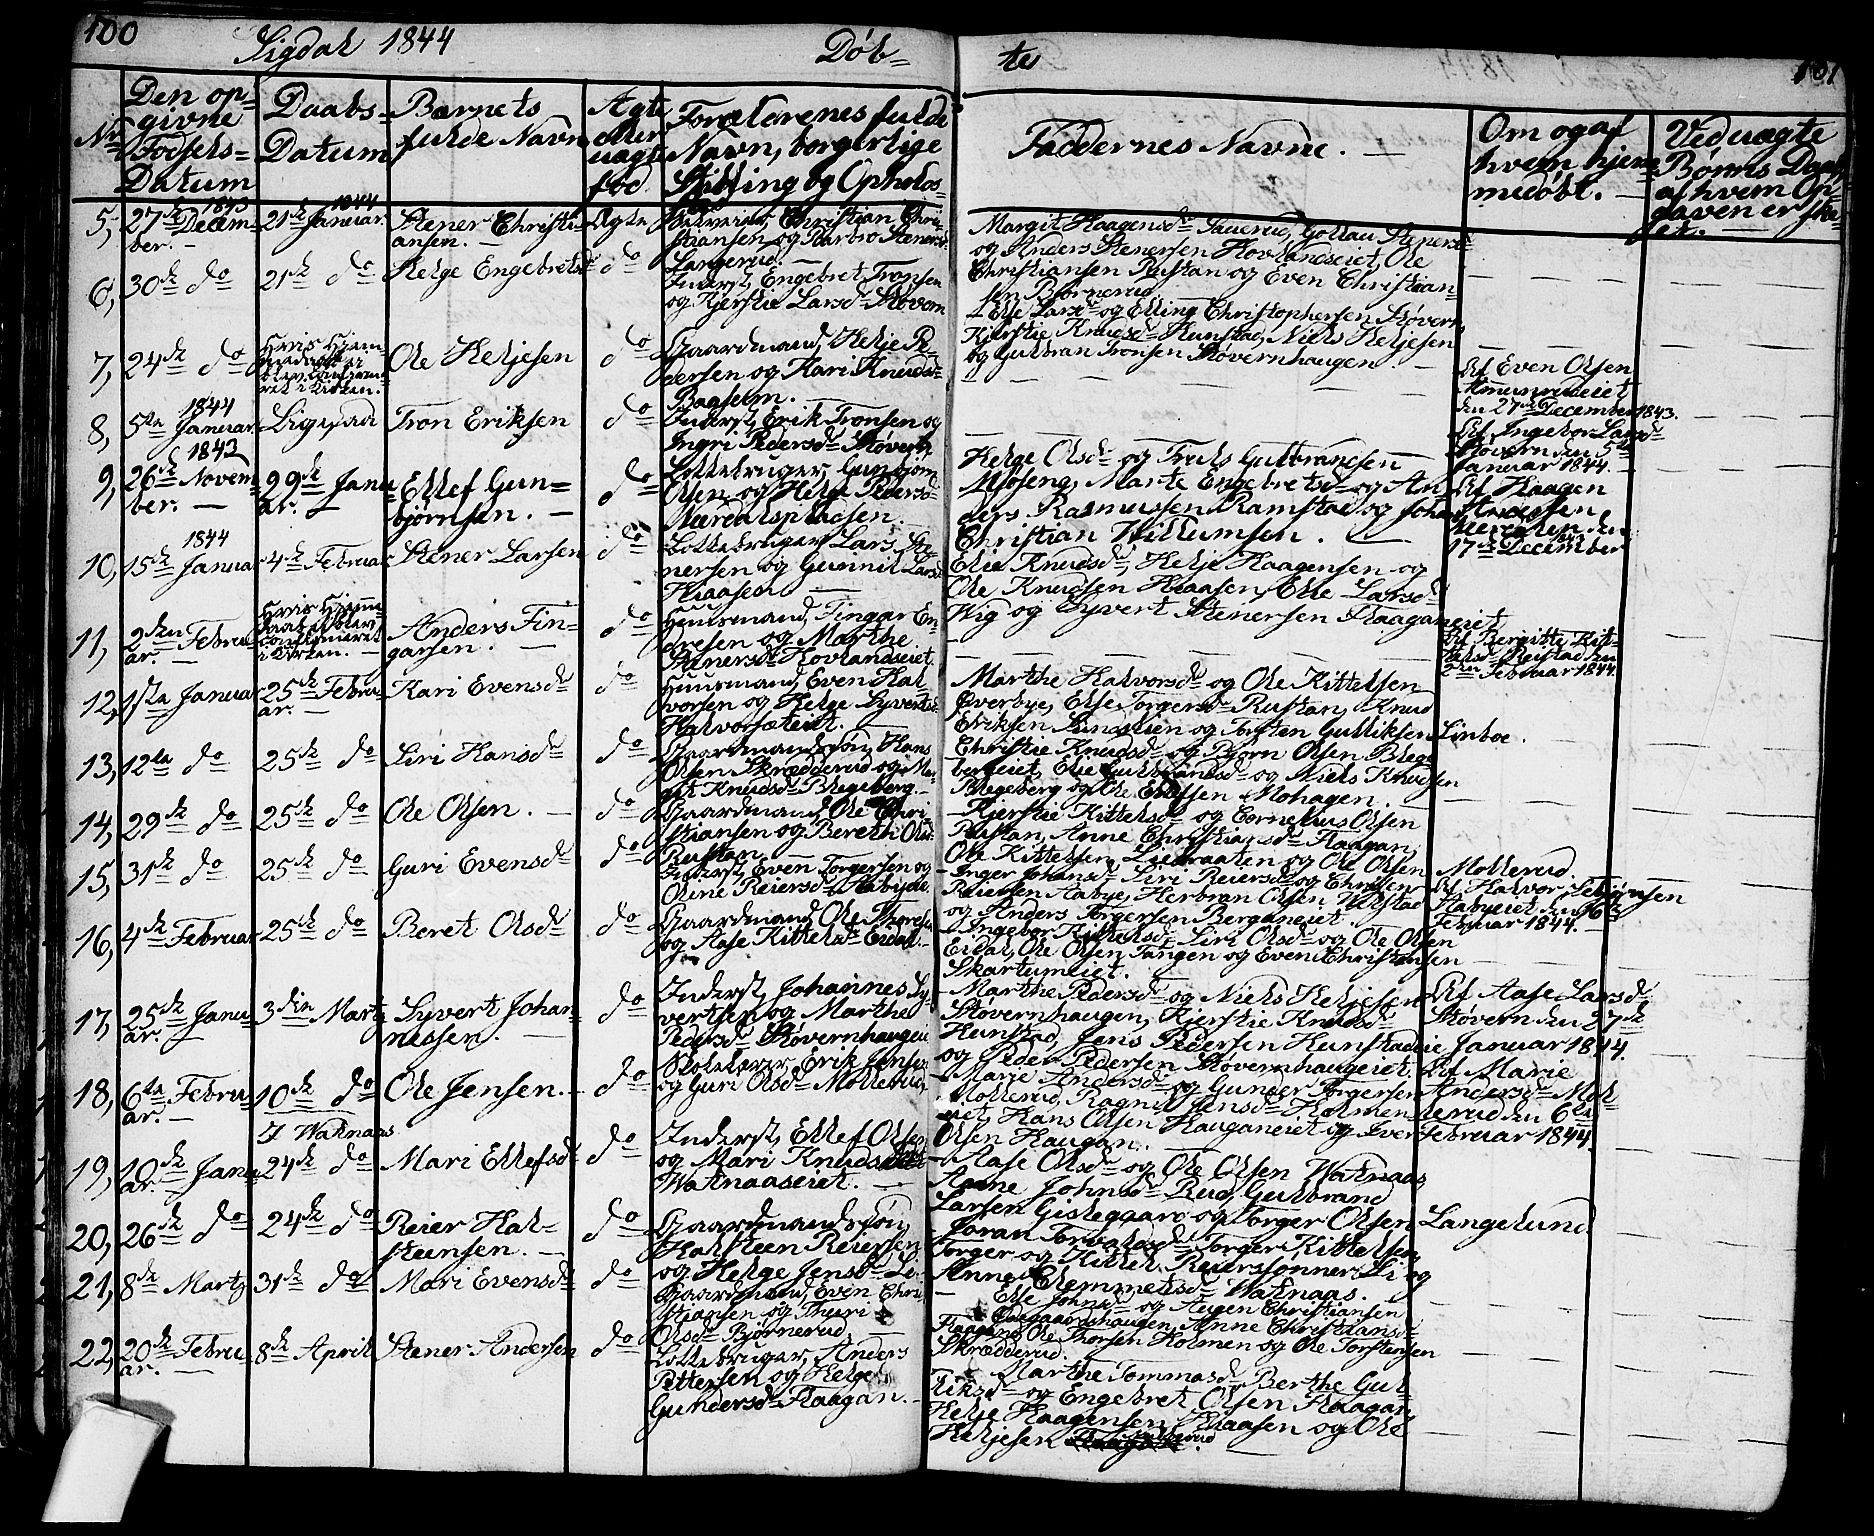 100
Sigdal 1844
Døb=
te
101
Nr
Den op=
givne
Fødsels=
Datum
Daabs=
Datum
Barnets
fulde Navn
Ægte
eller
uægte
fød.
Forældrenes fulde
Navn, borgerlige
Stilling og Opholds=
Faddernes Navne. —
Om og af
hvem hjem=
medøbt. —
Ved uægte
Børns Daab,
af hvem Op=
gaven er ske=
et. —
5,
1843
27de Decem=
ber. —
1844
21de Januar.
Stener Christi=
ansen. —
Ægte
Christian Chri=
stiansen og Barbro Stenersd
Langerud. —
Margit Haagensd Sauerud, Stenersd
og Anders Stenersen Hovlandseiet, Ole
Christiansen Rustan og Even Christian=
sen Bjørnerud
6,
30de do
21de do
Helge Engebretsd
do
Inderst, Engebret Tronsen
og Kjerstie Larsd Støvern
Else Larsd og Elling Christophersen Støvern,
Kjerstie Knudsd Kunstad, Niels Heljesen
og Gulbran Tronsen Støvernhaugen. —
7,
24de do
Hvis Hjem=
medaab er
bleven confirme=
ret i Kirken.
Ole Heljesen
do
Gaardmand, Helje Pe=
dersen og Kari Knudsd
Baaselm. —
Af Even Olsen
den 27de December 1843.
8,
1844
5te Januar
Tron Eriksen
do
Inderst, Erik Tronsen og
Ingri Pedersd Støvern,
Af Ingebor Larsd
Støvern den 5te
Januar 1844.
9,
1843
26de Novem=
ber. —
29de Janu=
ar. —
Ellef Gun=
bjørnsen. —
do
Lottebruger, Gunbjørn
Olsen og Helge Pedersd
Neredalspladsen. —
Helge Olsd og Truls Gulbrandsen
Mjøseng, Marte Engebretsd og An=
ders Rasmussen Ramstad og Johan
Christian Willumsen. —
Af Haagen
17de December
10,
1844
15de Januar
4de Februar
Stener Larsen
do
Lottebruger Lars Ste=
nersen og Gunnil Larsd
Kiaasen —
Elie Knudsd, Helje Haagensen og
Ole Knudsen Kiaasen, Else Larsd
Wig og Syvert Stenersen Flaaganeiet
11,
2den Febru=
ar. —
Hvis Hjemme=
daab er bleven
confirmeret
i Kirken. —
Anders Fin=
garsen. —
do
Huusmand, Fingar En=
dresen og Marthe
Stenersd Hovlandseiet.
Af Bergitte Kit=
telsd Reistad den
2den Februar 1844.
12,
1ste Januar
25de Febru=
ar. —
Kari Evensd
do
Huusmand, Even Hal=
vorsen og Helge Syvertsd
Marthe Halvorsd og Ole Kittelsen
Øverbye, Else Torgersd Rustan, Knud
Eriksen og Torsten Gulliksen Linboe.
13,
12te do
25de do
Siri Hansd
do
Gaardmandssøn, Hans
Olsen Skrædderud og Ma=
rit Knudsd Blegeberg. —
Christie Knudsd og Bjørn Olsen Blege
bergeiet, Elie Gulbrandsd og Niels Knudsen
Blegeberg og Ole Mohagen.
14,
29de do
25de do
Ole Olsen. —
do
Gaardmand, Ole Chri=
stiansen og Bereth Olsd
Rustan
Kjerstie Kittelsd og Cornelius Olsen
Rustan, Anne Christiansd Flaagan,
Ole Kittelsen Liebraaten og Ole Olsen Mollerud.
15,
31te do
25de do
Guri Evensd
do
Inderst Even Torgersen og
Oline Reiersd Aabyeie
Inger Johansd Siri Reiersd og Christen
Reiersen Aabye, Herbran Olsen Ulfstad
og Anders Torgersen Berganeiet.
Af Halvor
Aabyeiet den 16de
Februar 1844. —
16,
4de Februar
25de do
Beret Olsd
do
Gaardmand Ole Thoresen
og Aase Kittelsd Eidal. —
Ingebor Kittelsd Siri Olsd og Ole Olsen
Eidal, Ole Olsen Tangen og Even Christensen
Skartumeiet.
17,
25de Janu=
ar. —
3die Martz
Syvert Johan=
nessen. —
do
Inderst, Johannes Sy=
vertsen og Marthe
Pedersd Støvernhaugen
Marthe Pedersd og Niels Heljesen
Støvernhaugen, Kjerstie Knudsd
Kunstad, Jens Pedersen Kunstadeie
og Peder Pedersen Støvernhaugeiet.
Af Aase Larsd
Støvern den 27de
Januar 1844.
18,
6te Febru=
ar. —
10de do
Ole Jensen. —
do
Skolelærer Erik Jensen
og Guri Olsd Mollerud,
Marie Andersd og Gunder Torgersen
Mollerud, Ragnil Jensd Holmen=
eiet, Hans Olsen Hauganeiet og Iver
Olsen Haugan. —
Af Marie
Andersd Mol=
lerud den 6te
Februar 1844.
19,
10de Janu=
ar. —
I Watnaas
24de do
Mari Ellefsd
do
Inderst, Ellef Olsen
og Mari Knudsd
Watnaaseiet. —
Aase Olsd og Ole Olsen Watnaas
Anne Johnsd Rud, Gulbrand
Larsen Gislegaard og Torger Olsen Langelund
20,
26de do
24de do
Reier Hal=
steensen. —
do
Gaardmandssøn,
Halsteen Reiersen
og Helge Jensd Li.
Joran Torvalsd Torger Kittelsen,
Torger og Kittel Reierssønner Li og
Anne Clemmetsd Watnaas.
21,
8de Martz
31de do
Mari Evensd
do
Gaardmand, Even Chri=
stiansen og Thuri
Olsd Bjørnerud,
Else Johnsd og Aagen Christiansen
Ødegaardshaugen, Anne Christiansd
Flaagan, Ole Thorsen Holmen og Ole Torstensen
Skrædderud.
22,
20de Febru=
ar. —
8de April
Stener Andersen
do
Lottebruger, Anders
Pettersen og Helge
Gundersd Flaagan. —
Marthe Tommasd Berthe Gul=
liksd og Engebret Olsen Flaagan,
Helje Haagensen Kiaasen og Ole
Heljesen